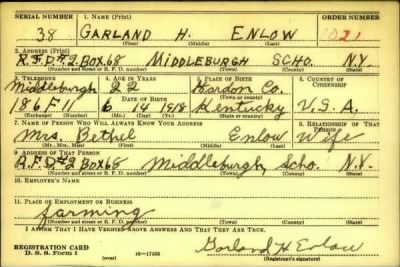 SERIAL NUMBER 1. NAME (Print) ORDER NUMBER
38 GARLAND H. ENLOW 1021
(First) (Middle) (Last)
2. ADDRESS (Print)
R.F.D.#2.BOX.68 MIDDLEBURGH SCHO. N.Y.
(Number and street or R. F. D. number) (Town) (County) (State)
3. TELEPHONE 4. AGE IN YEARS 5. PLACE OF BIRTH 6. COUNTRY OF CITIZENSHIP
Middleburgh 22 Hardon Co.
DATE OF BIRTH (Town or county)
186F11 6 14 1918 Kentucky U.S.A.
(Exchange) (Number) (Mo.) (Day) (Yr.) (State or country)
7. NAME OF PERSON WHO WILL ALWAYS KNOW YOUR ADDRESS 8. RELATIONSHIP OF THAT PERSON
Mrs. Bethel Enlow Wife
(Mr., Mrs., Miss) (First) (Middle) (Last)
9. ADDRESS OF THAT PERSON
R.F.D.#2 BOX68 Middleburgh, Scho. N.Y.
(Number and street or R. F. D. number) (Town) (County) (State)
10. EMPLOYER'S NAME
11. PLACE OF EMPLOYMENT OR BUSINESS
farming
(Number and street or R. F. D. number) (Town) (County) (State)
I AFFIRM THAT I HAVE VERIFIED ABOVE ANSWERS AND THAT THEY ARE TRUE.
REGISTRATION CARD
D. S. S. Form 1 16—17105 Garland H Enlow
(Registrant's signature)